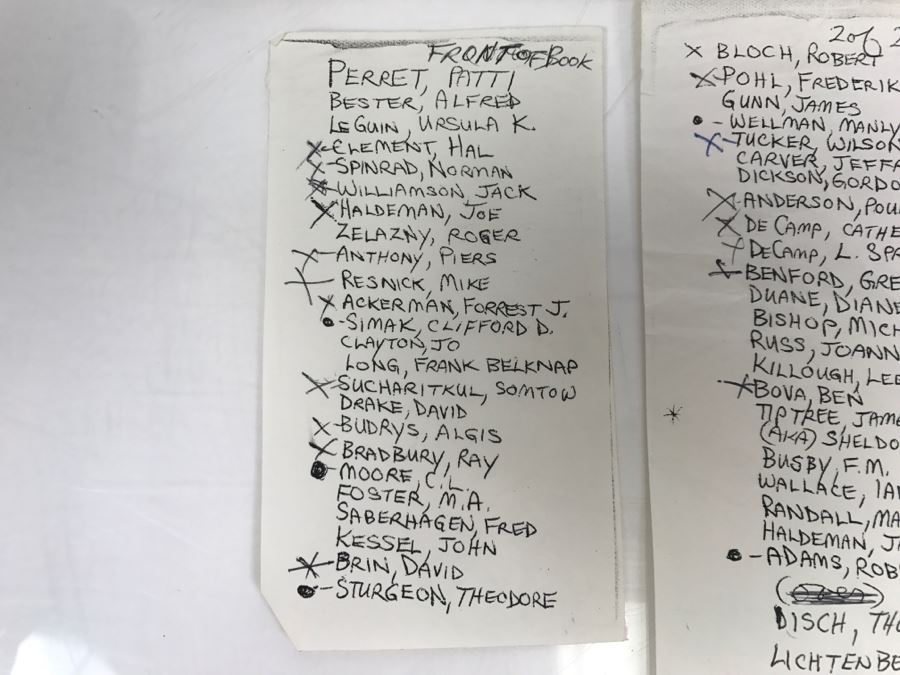 FRONT OF BOOK
PERRET, PATTI
BESTER, ALFRED
LE GUIN, URSULA K.
X-CLEMENT, HAL
X-SPINRAD, NORMAN
X-WILLIAMSON, JACK
X HALDEMAN, JOE
ZELAZNY, ROGER
X-ANTHONY, PIERS
X RESNICK, MIKE
X ACKERMAN, FORREST J.
•-SIMAK, CLIFFORD D.
CLAYTON, JO
LONG, FRANK BELKNAP
X-SUCHARITKUL, SOMTOW
DRAKE, DAVID
X-BUDRYS, ALGIS
X BRADBURY, RAY
•-MOORE, C.L.
FOSTER, M.A.
SABERHAGEN, FRED
KESSEL, JOHN
X-BRIN, DAVID
•-STURGEON, THEODORE
2 of 2
X BLOCH, ROBERT
X-POHL, FREDERIK
GUNN, JAMES
•-WELLMAN, MANLY
X-TUCKER, WILSON
CARVER, JEFFA
DICKSON, GORDO
X-ANDERSON, POU
X DE CAMP, CATHE
X DECAMP, L. SPR
X-BENFORD, GRE
DUANE, DIANE
BISHOP, MICH
RUSS, JOANN
KILLOUGH, LEE
X-BOVA, BEN
* TIPTREE, JAME
(AKA) SHELDO
BUSBY, F.M.
WALLACE, IAN
RANDALL, MA
HALDEMAN, JA
•-ADAMS, ROB
DISCH, THO
LICHTENBE